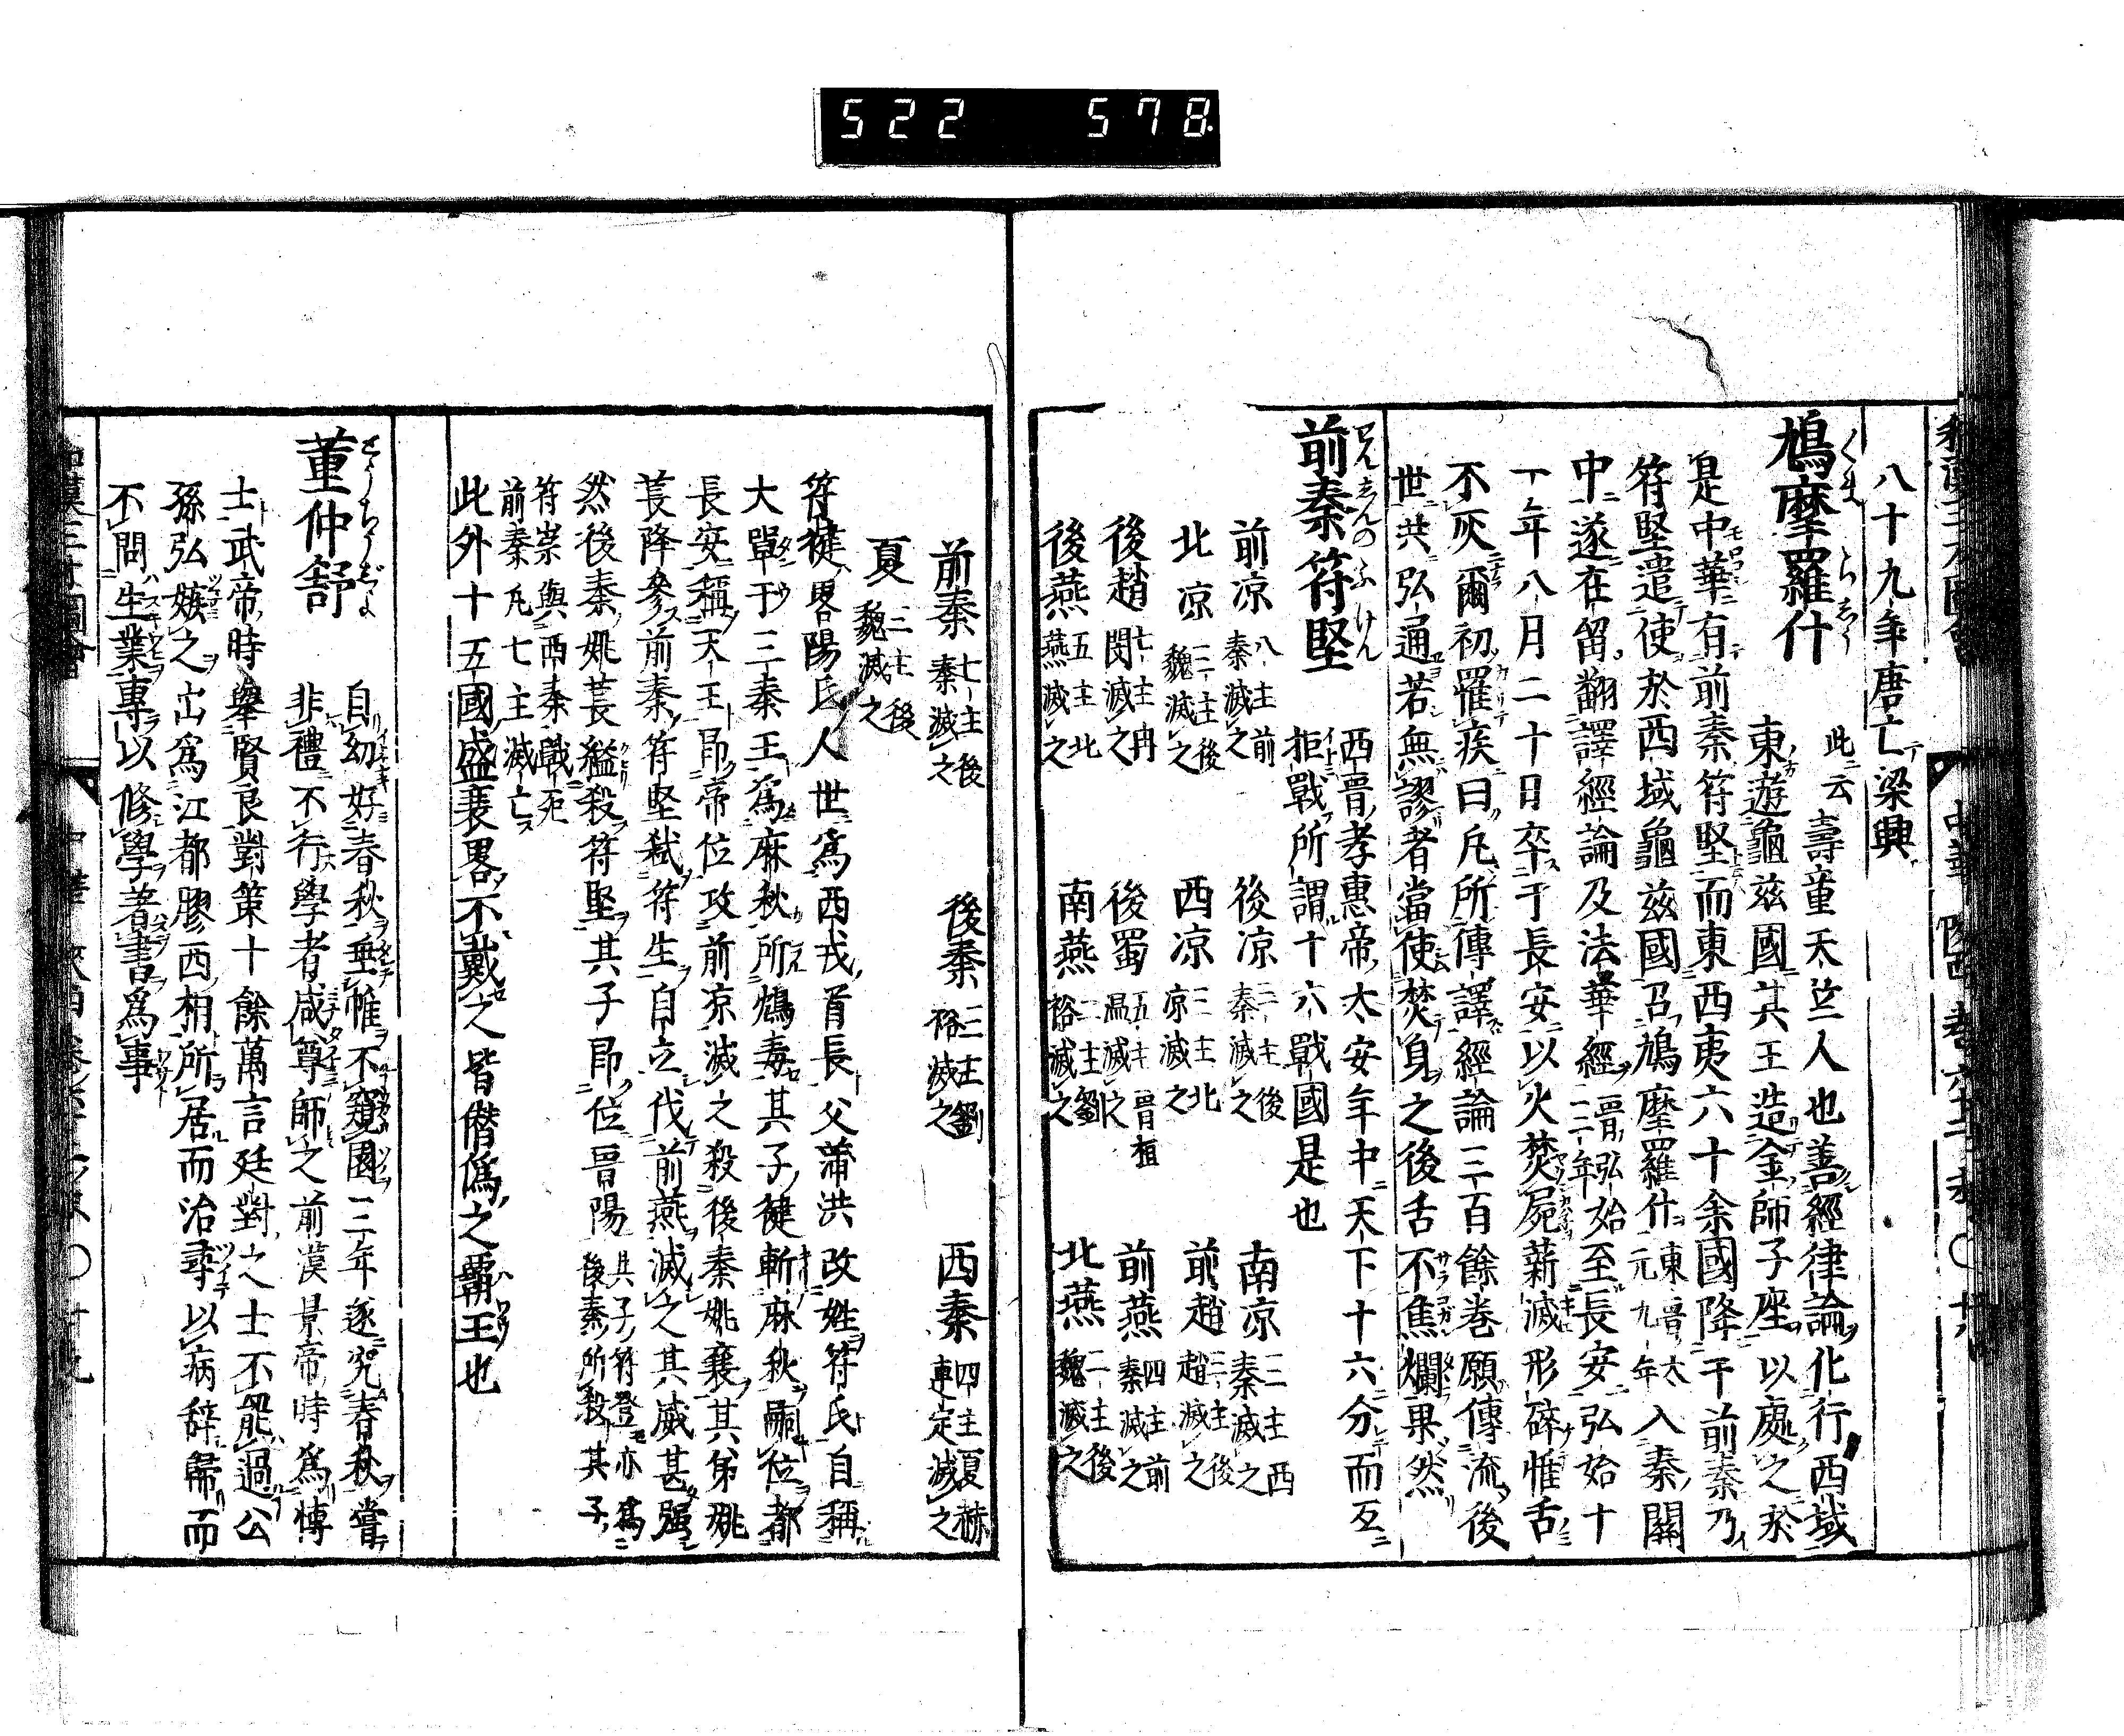 522 578.
八十九年唐亡梁興
鳩摩羅什
此云壽童天竺人也善經律論化行西域
東遊龜茲國其王造金師子座以處之於
是中華有前秦符堅而東西夷六十余國降于前秦乃
符堅遣使於西域龜茲國召鳩摩羅什東晉太元九年入秦關
中遂在留翻譯經論及法華經晉弘始二年始至長安弘始十
一年八月二十日卒于長安以火焚屍薪滅形碎惟舌
不灰爾初罹疾曰凡所傳譯經論三百餘巻願傳流後
世共弘通若無謬者當使焚身之後舌不焦爛果然
前秦符堅
西晉孝惠帝太安年中天下十六分而互
拒戰所謂十六戰國是也
前凉八主前秦滅之 後凉二主後秦滅之 南凉三主西秦滅之
北凉二主後魏滅之 西凉三主北凉滅之 前趙三主後趙滅之
後趙七主冉閔滅之 後蜀五主晋桓温滅之 前燕四主前秦滅之
後燕五主北燕滅之 南燕二主劉裕滅之 北燕二主後魏滅之
前秦七主後秦滅之 後秦三主劉裕滅之 西秦四主夏赫連定滅之
夏三主後魏滅之
符健畧陽氏人世爲西戎首長父蒲洪改姓符氏自稱
大單于三秦王爲麻秋所鴆毒其子健斬麻秋嗣位都
長安稱天王昂帝位攻前凉滅之殺後秦姚襄其弟姚
萇降參前秦符堅弑符生自立伐前燕滅之其威甚强
然後秦姚萇縊殺符堅其子昂位晋陽其子符登亦爲後秦所殺其子
符崇與西秦戰死
前秦凡七主滅亡
此外十五國盛衰畧不載之皆僭偽之霸王也
董仲舒
自幼好春秋垂帷不窺園三年遂究春秋嘗
非禮不行學者咸尊師之前漢景帝時爲博
士武帝時擧賢良對策十餘萬言廷對之士不能過公
孫弘嫉之出爲江都膠西相所居而治尋以病辞歸而
不問生業專以修學著書爲事